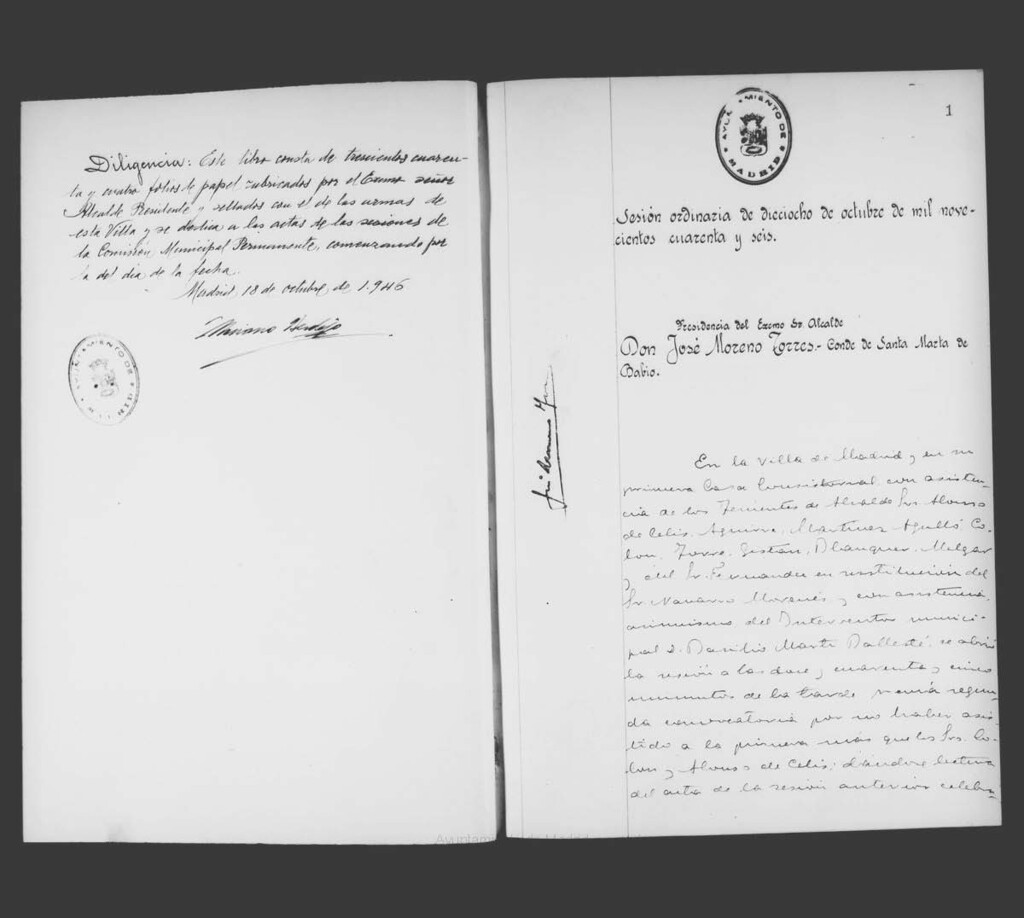 Diligencia: Este libro consta de trescientos cuaren-
ta y cuatro folios de papel rubricados por el Excmo señor
Alcalde Presidente y sellados con el de las armas de
esta Villa y se dedica a las actas de las sesiones de
la Comisión Municipal Permanente, comenzando por
la del día de la fecha.
Madrid 18 de octubre de 1.946
Mariano
AYUNTAMIENTO DE MADRID
AYUNTAMIENTO DE MADRID
1
Sesión ordinaria de dieciocho de octubre de mil nove-
cientos cuarenta y seis.
Presidencia del Excmo Sr Alcalde
Don José Moreno Torres.- Conde de Santa Marta de
Babio.
En la Villa de Madrid y en su
primera Casa Consistorial, con asisten-
cia de los Tenientes de Alcalde Srs Alonso
de Celis, Aguirre, Martinez Agulló, Co-
lon, Torre, Gistau, Blanquer, Melgar
y del Sr. Fernandez en sustitución del
Sr. Navarro Morenés y con asistencia
asimismo del Interventor munici-
pal D. Basilio Martí Ballesté, se abrió
la sesión a las doce y cuarenta y cinco
minutos de la tarde segun-
da convocatoria por no haber asis-
tido a la primera más que los Srs. Co-
lon y Alonso de Celis; dándose lectura
del acta de la sesión anterior celebra-